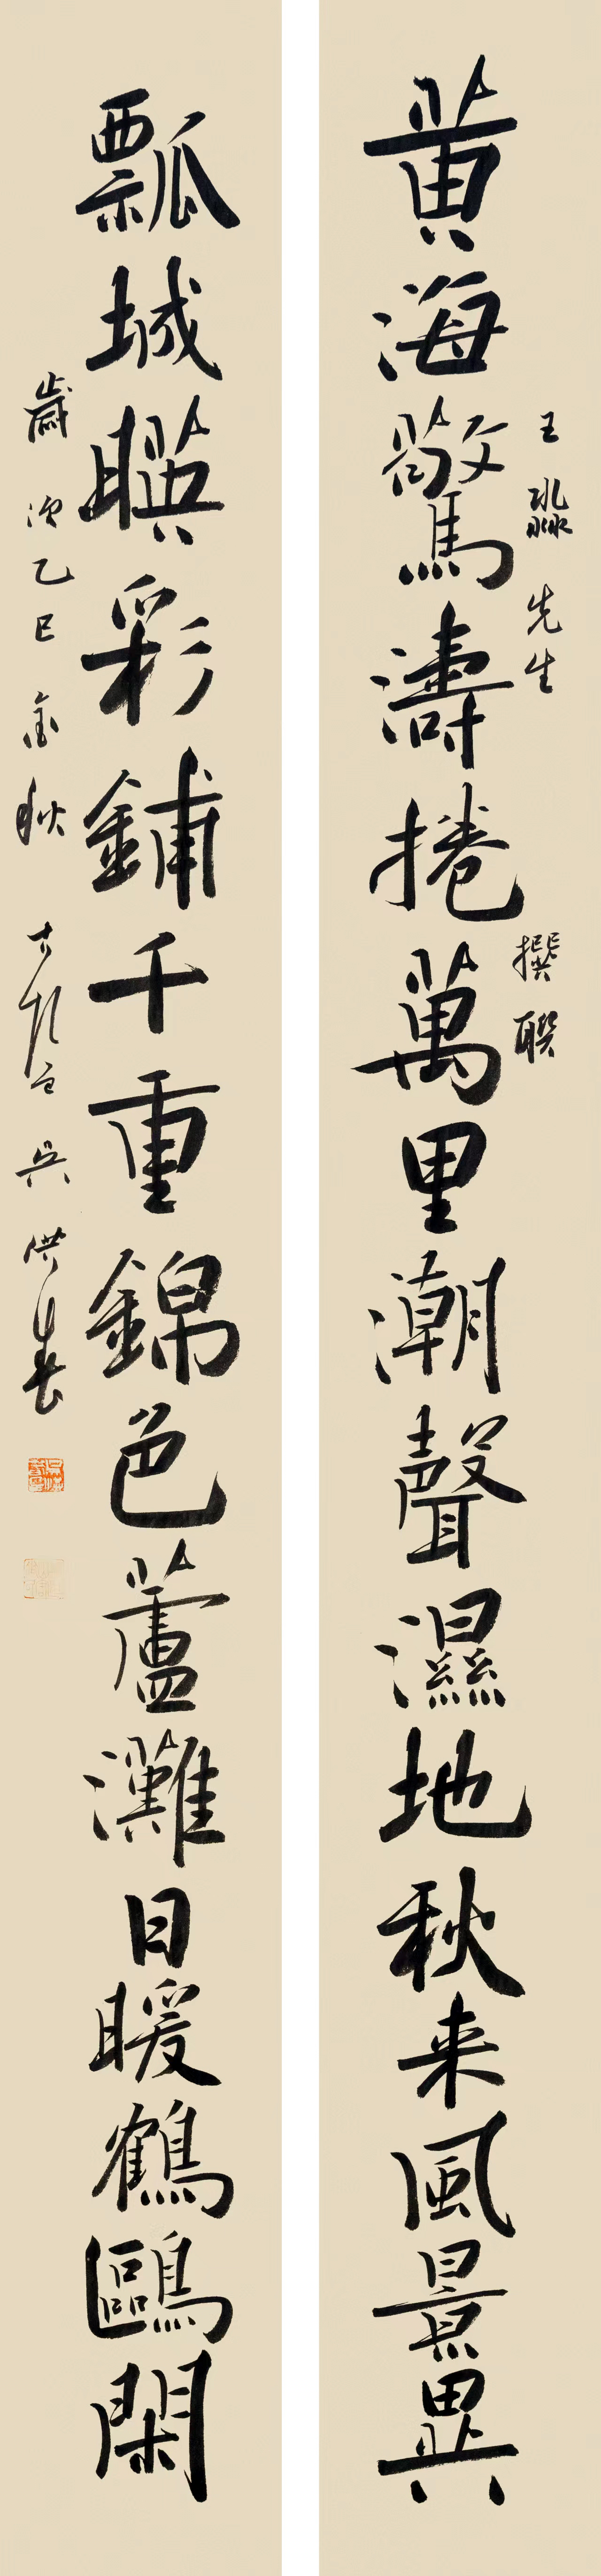 王 先生 撰聯
黄海驚濤捲萬里潮聲濕地秋来風景異
瓢城暎彩鋪千重錦色蘆灘日暖鶴鷗閑
歲次乙巳金秋 吳洪春